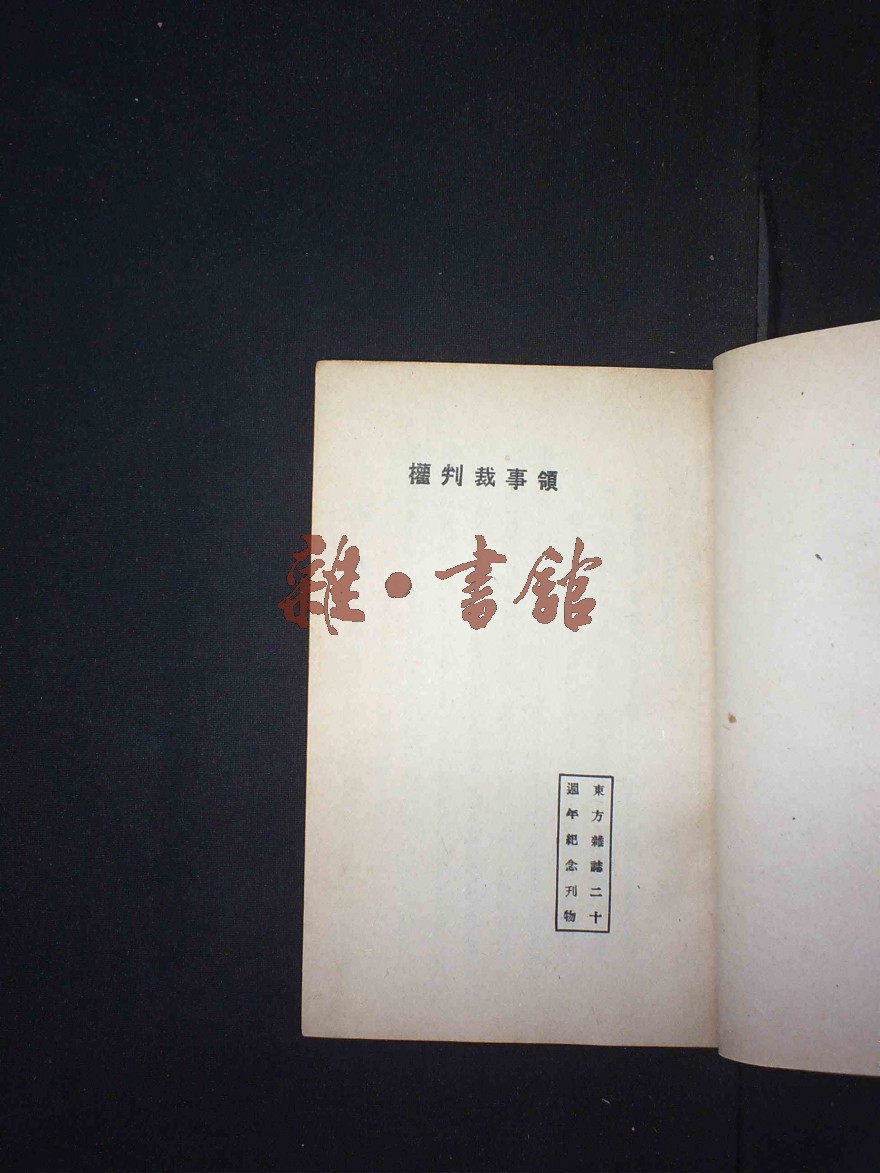 領事裁判權
雜·書館
東方雜誌二十
週年紀念刊物